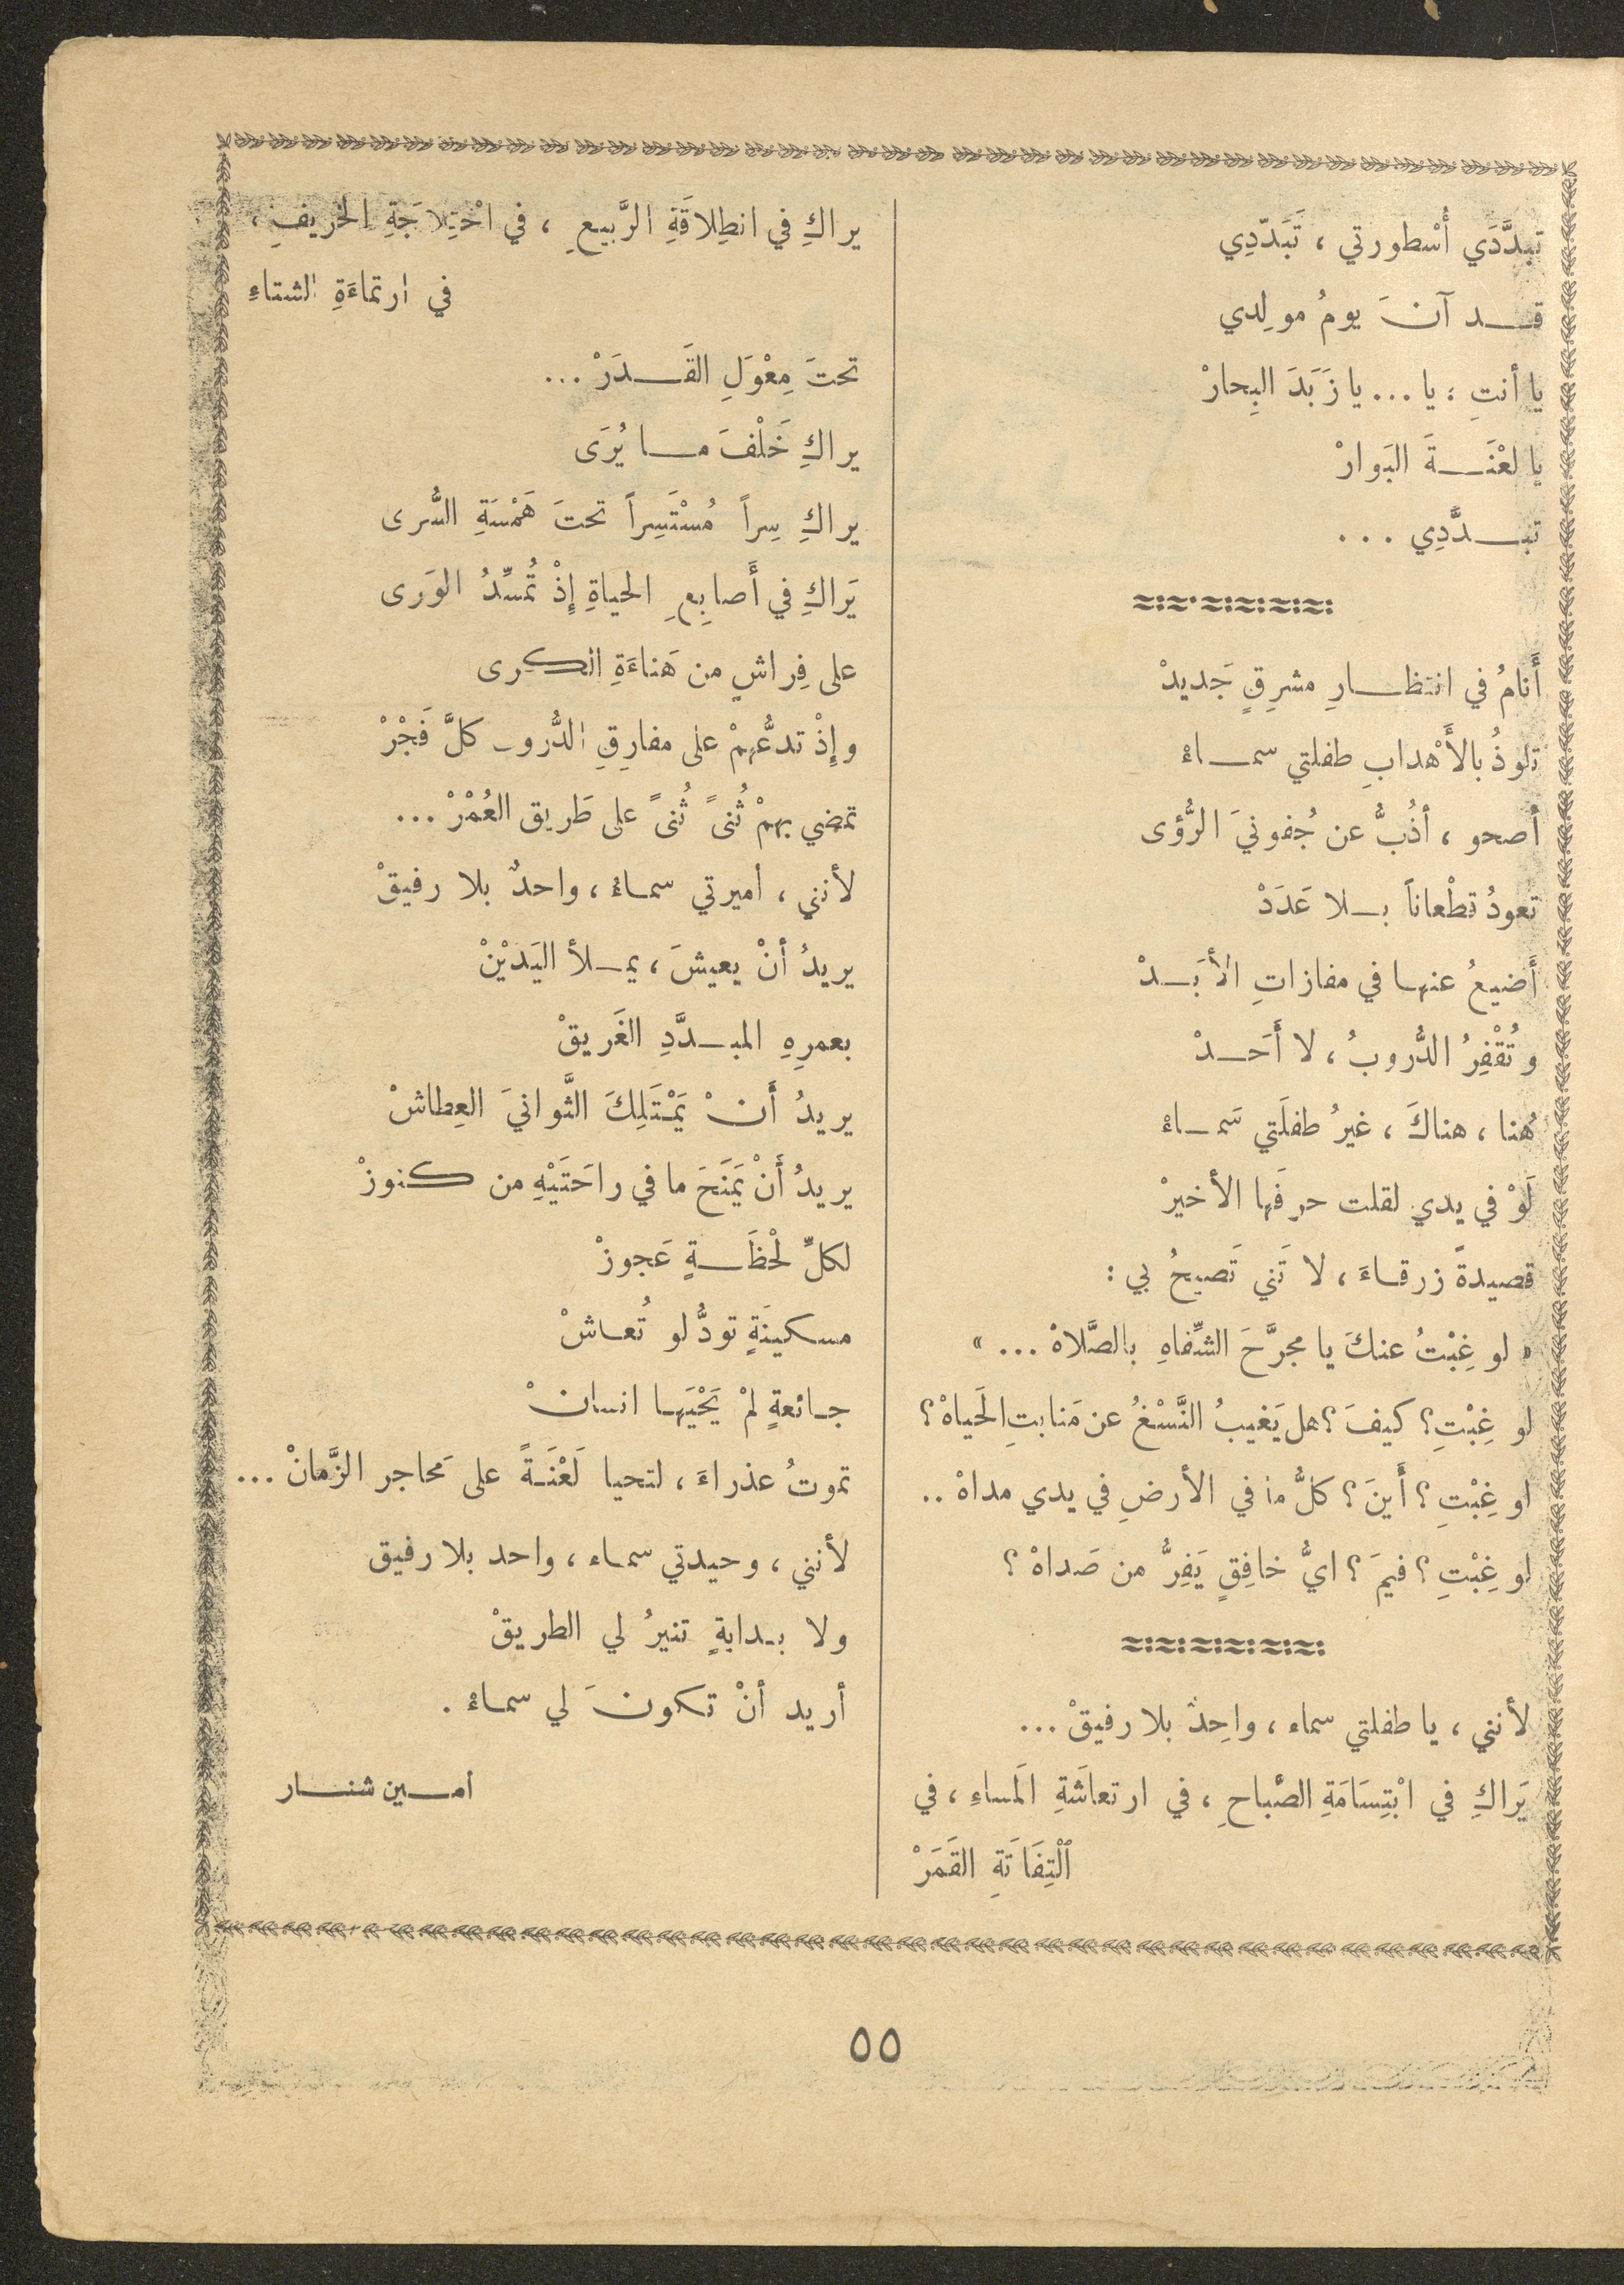 تبدَّدَي أُسْطورتي ، تَبَدّدِي
قـد آنَ يومُ مولِدي
يا أنتِ : يا ... يا زَبَدَ البِحارْ
يا لعْنَـةَ البَوارْ
تبـدَّدِي ...
أَنامُ في انتظـارِ مشرِقٍ جَديدْ
تلوذُ بالأَهْدابِ طفلتي سمـاءْ
أصحو ، أذُبُّ عن جُفونيَ الرُّؤى
تعودُ قطْعاناً بـلا عَدَدْ
أَضيعُ عنهـا في مفازاتِ الأبَـدْ
وتُقْفِرُ الدُّروبُ ، لا أَحَـدْ
هُنا ، هناكَ ، غيرُ طفلَتي سَمـاءْ
لَوْ في يدي لقلت حرفَها الأخيرْ
قصيدةً زرقـاءَ ، لا تَني تَصيحُ بي :
« لو غِبْتُ عنكَ يا مجرَّحَ الشِّفاهِ بالصَّلاهْ ... »
لو غِبْتِ؟ كيفَ؟ هل يَغيبُ النَّسْغُ عن مَنابتِ الحَياهْ؟
لو غِبْتِ؟ أَينَ؟ كلُّ ما في الأرضِ في يدي مداهْ ..
لو غِبْتِ؟ فيمَ؟ ايُّ خافِقٍ يَفِرُّ من صَداهْ؟
لأنني ، يا طفلتي سماء ، واحِدٌ بلا رفيقْ ...
يَراكِ في ابْتِسَامَةِ الصَّباحِ ، في ارتعاشَةِ المَساءِ ، في
ٱلْتِفَاتَةِ القَمَرْ
يراكِ في انطِلاقَةِ الرَّبيعِ ، في اخْتِلاجَةِ الخريفِ ،
في ارتماءَةِ الشتاءِ
تحتَ مِعْوَلِ القَـدَرْ ...
يراكِ خَلْفَ مـا يُرَى
يراكِ سِراً مُسْتَسِراً تحتَ هَمْسَةِ السُّرى
يَراكِ في أَصابِعِ الحياةِ إِذْ تُمسِّدُ الوَرى
على فِراشٍ من هَناءَةِ الكرى
وإِذْ تدعُّهمْ على مفارِقِ الدُّروب كلَّ فَجْرْ
تمضي بهمْ ثُنىً ثُنىً على طَريق العُمْرْ ...
لأنني ، أميرتي سمـاءْ ، واحدٌ بلا رفيقْ
يريدُ أنْ يعيشَ ، يمـلأ اليَدَيْنْ
بعمرِهِ المبـدَّدِ الغَريقْ
يريدُ أَنْ يَمْتَلِكَ الثَّوانيَ العِطاشْ
يريدُ أَنْ يَمنَحَ ما في راحَتَيْهِ من كنوزْ
لكلِّ لحْظَـةٍ عَجوزْ
مسكينَةٍ تودُّ لو تُعـاشْ
جـائعةٍ لمْ يَحْيَهـا انسانْ
تموتُ عذراءَ ، لتحيا لَعْنَـةً على مَحاجر الزَّمانْ ...
لأنني ، وحيدتي سمـاء ، واحد بلا رفيق
ولا بـدايةٍ تنيرُ لي الطريقْ
أريد أنْ تكونَ لي سمـاءْ .
أمـين شنـار
٥٥